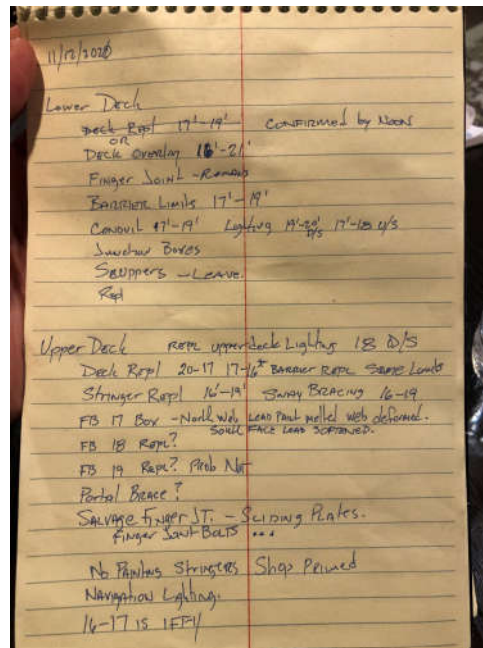 11/12/2020
Lower Deck
Deck Repl 17'-19' CONFIRMED by NOON
OR
DECK OVERLAY 16'-21'
FINGER JOINT - REMAINS
BARRIER LIMITS 17'-19'
CONDUIT 17'-19' Lighting 19'-20' D/S 17'-18 U/S
Junction Boxes
SCUPPERS - LEAVE.
Repl
Upper Deck REPL upper deck Lighting 18 D/S
Deck Repl 20-17 17-16 BARRIER REPL SAME Limits
Stringer Repl 16'-19' SWAY BRACING 16-19
FB 17 Box - North Web LEAD PAINT melted web deformed.
SOUTH FACE LEAD SOFTENED.
FB 18 REPL?
FB 19 REPL? Prob Not
Portal BRACE?
SALVAGE FINGER JT. - SLIDING PLATES.
FINGER JOINT BOLTS ...
No PAINTING STRINGERS Shop Primed
NAVIGATION Lighting.
16-17 IS